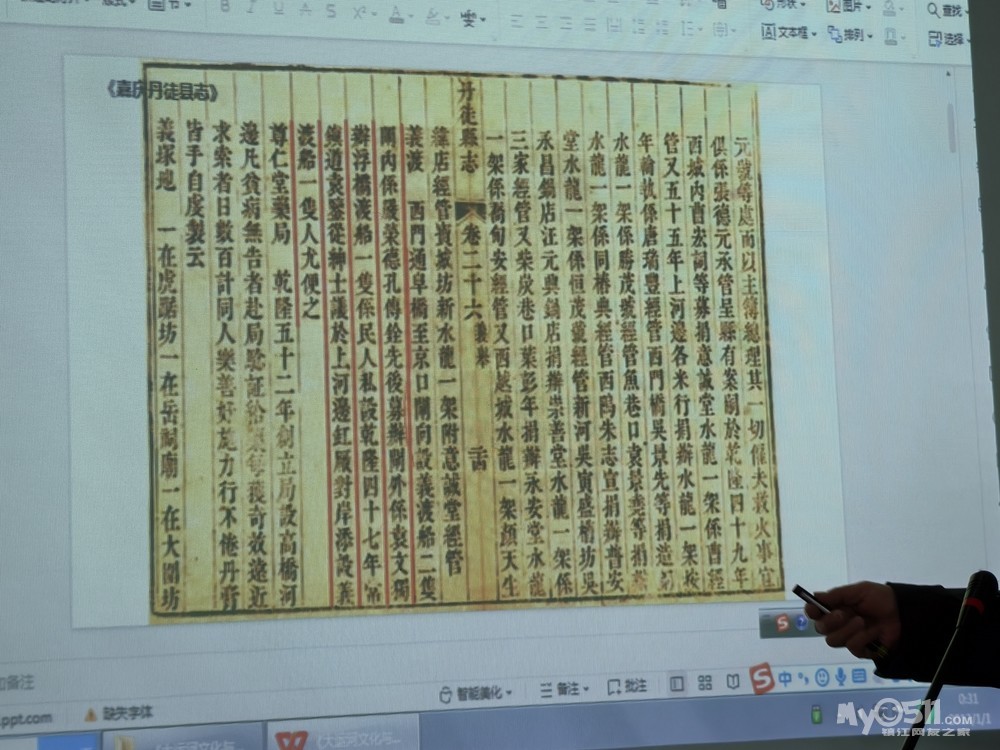 形状
图片
查找
文本框
排列
选择
《嘉庆丹徒县志》
元號等處而以主簿總理其一切催夫救火事宜
俱係張德元承管呈縣有案關於乾隆四十九年
西城內曹宏詞等募捐意誠堂水龍一架係曹經
管又五十五年上河邊各米行捐辦水龍一架
年翰敘係唐瑞豐經管西門橋吳景先等捐造
水龍一架係勝茂號經管魚巷口袁景堯等捐
水龍一架係同椿典經管西門朱志宣捐辦普安
堂水龍一架係恒茂號經管新河吳寅盛槽坊吳
永昌錫店汪元興鍋店捐辦崇善堂水龍一架係
三家經管又柴炭巷口葉彭年捐辦永安堂水龍
一架係喬旬安經管又西越城水龍一架顏天生
丹徒縣志 卷二十六 義舉
雜店經管賓城坊新水龍一架附意誠堂經管
義渡 西門通阜橋至京口閘向設義渡船二隻
閘內係嚴榮德孔傳銓先後募辦閘外係袁文獨
辦浮橋渡船一隻係民人私設乾隆四十七年常
鎮道袁鑒從紳士議於上河邊紅廠對岸添設義
渡船一隻人尤便之
尊仁堂藥局 乾隆五十二年創立局設高橋河
邊凡貧病無告者赴局驗証給藥每獲奇效遠近
求索者日數百計同人樂善好施力行不倦丹膏
皆手自虔製云
義塚地 一在虎踞坊一在岳祠廟一在大圍坊
备注
智能美化
备注
批注
中
.ppt.com
缺失字体
《大运河文化与...
0:31
MY0511.COM
镇江网友之家